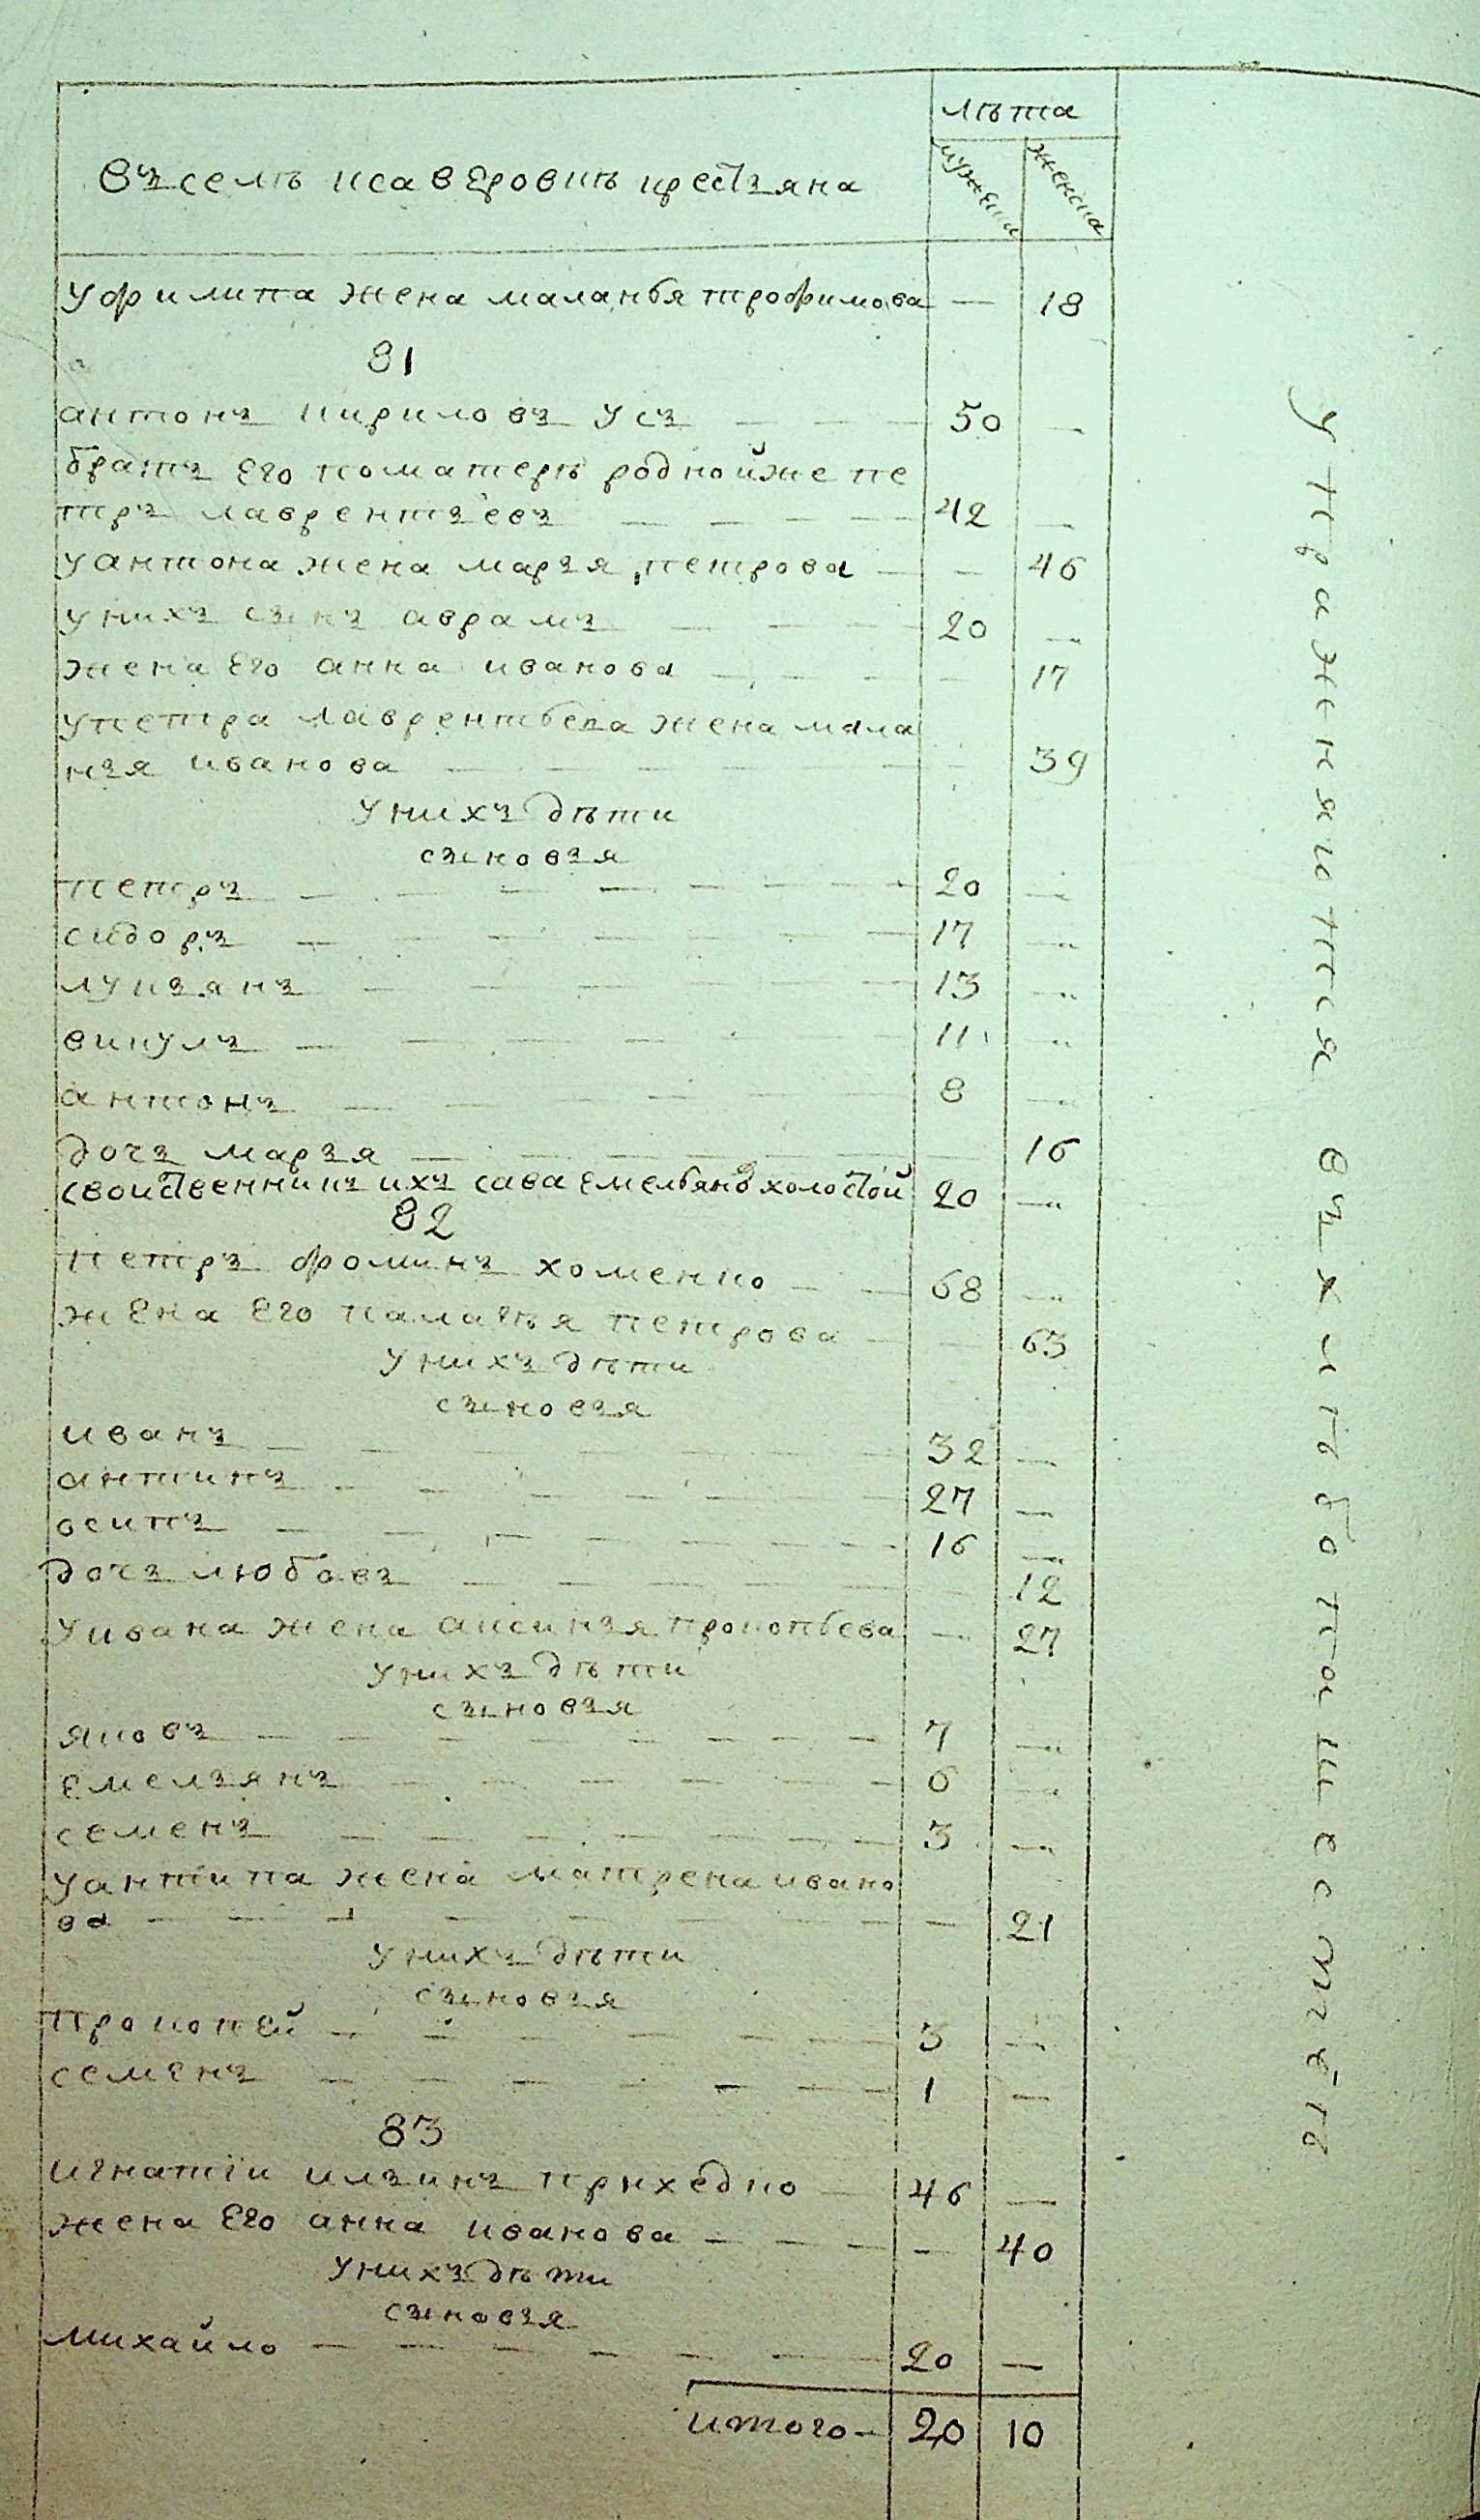 лѣта
мужеска
женска
въ селѣ исавѣровкѣ крестьяна
У филипа жена маланья трофимова — 18
81
антонъ кириловъ усъ — 50 —
братъ его поматерѣ роднойже пе
тръ лаврентьевъ — 42 —
у антона жена марья петрова — 46
у нихъ сынъ аврамъ — 20 —
жена его анна иванова — 17
у петра лаврентьева жена мала
нья иванова — 39
у нихъ дѣти
сыновья
петръ — 20 —
сидоръ — 17 —
лукьянъ — 13 —
викулъ — 11 —
антонъ — 8 —
дочь марья — 16
свойственникъ ихъ сава емельяновъ холостой 20 —
82
петръ фоминъ хоменко — 68 —
жена его палагѣя петрова — 63
у нихъ дѣти
сыновья
иванъ — 32 —
антипъ — 27 —
осипъ — 16 —
дочь любовь — 12
у ивана жена аксинья прокопьева — 27
у нихъ дѣти
сыновья
яковъ — 7 —
емельянъ — 6 —
семенъ — 3 —
у антипа жена матрена ивано
ва — 21
у нихъ дѣти
сыновья
прокопей — 3 —
семенъ — 1 —
83
игнатій ильинъ прихедко — 46 —
жена его анна иванова — 40
у нихъ дѣти
сыновья
михайло — 20 —
итого — 20 10
упражняются въ хлебопашестве